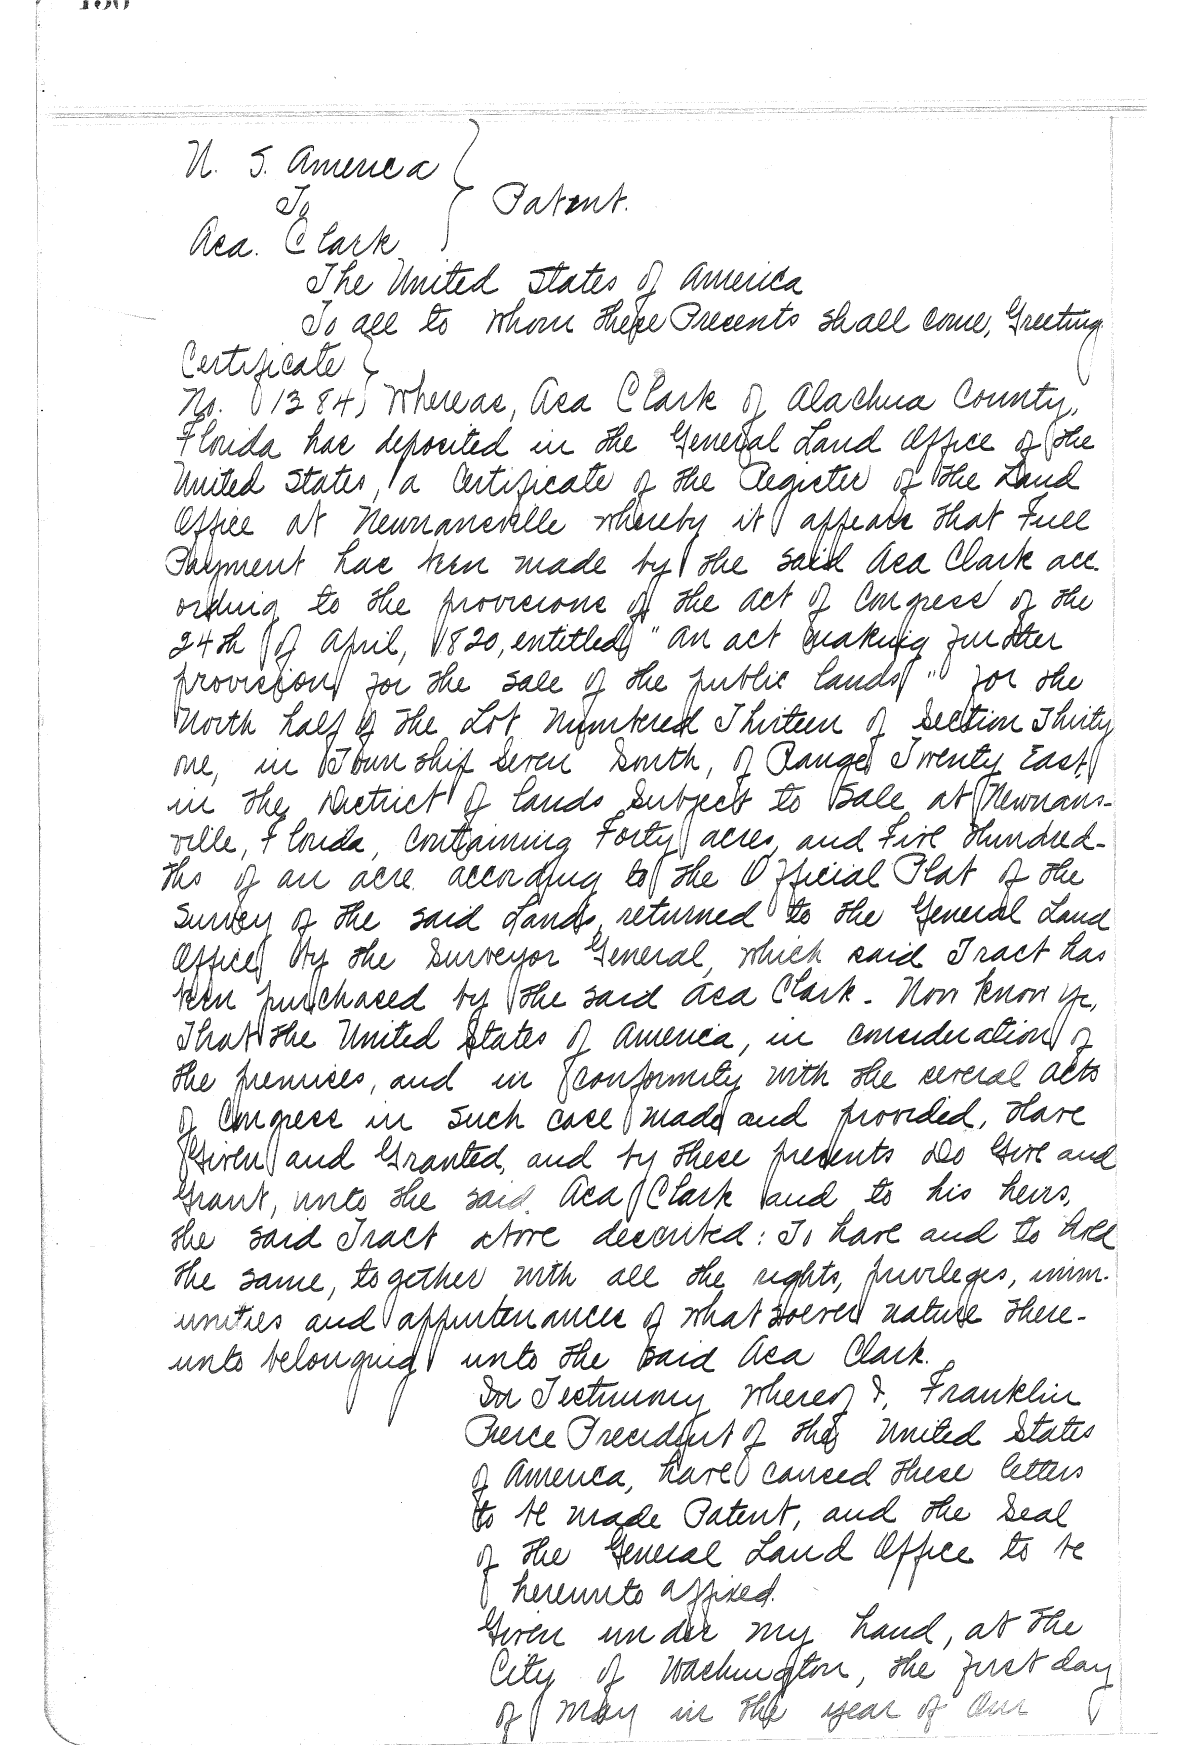 U. S. America
To } Patent.
Asa. Clark
The United States of America
To all to whom these Presents shall come, Greeting
Certificate }
No. 1384, Whereas, Asa Clark of Alachua County,
Florida has deposited in the General Land Office of the
United States, a Certificate of the Register of the Land
Office at Newnansville whereby it appears that Full
Payment has been made by the said Asa Clark acc-
ording to the provisions of the act of Congress of the
24th of April, 1820, entitled "An act making further
provision for the sale of the public lands" for the
North half of the Lot Numbered Thirteen of Section Thirty
one, in Township Seven South, of Range Twenty East
in the District of lands Subject to Sale at Newnans-
ville, Florida, Containing Forty acres, and Five Hundred-
ths of an acre according to the Official Plat of the
Survey of the said Lands, returned to the General Land
Office by the Surveyor General, which said Tract has
been purchased by the said Asa Clark - Now know ye,
That the United States of America, in consideration of
the premises, and in conformity with the several acts
of Congress in such case made and provided, Have
Given and Granted, and by these presents Do Give and
Grant, unto the said Asa Clark and to his heirs,
the said Tract above described: To have and to hold
the same, together with all the rights, privileges, imm-
unities and appurtenances of whatsoever nature there-
unto belonging unto the said Asa Clark.
In Testimony whereof I, Franklin
Pierce President of the United States
of America, have caused these letters
to be made Patent, and the Seal
of the General Land Office to be
hereunto affixed.
Given under my hand, at the
City of Washington, the first day
of May in the year of Our